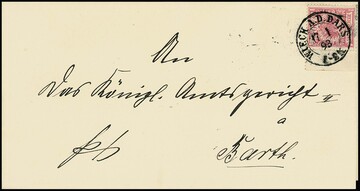 WIECK A. D. DARS
17 1
93
An
Das Königl. Amtsgericht
à
Barth.